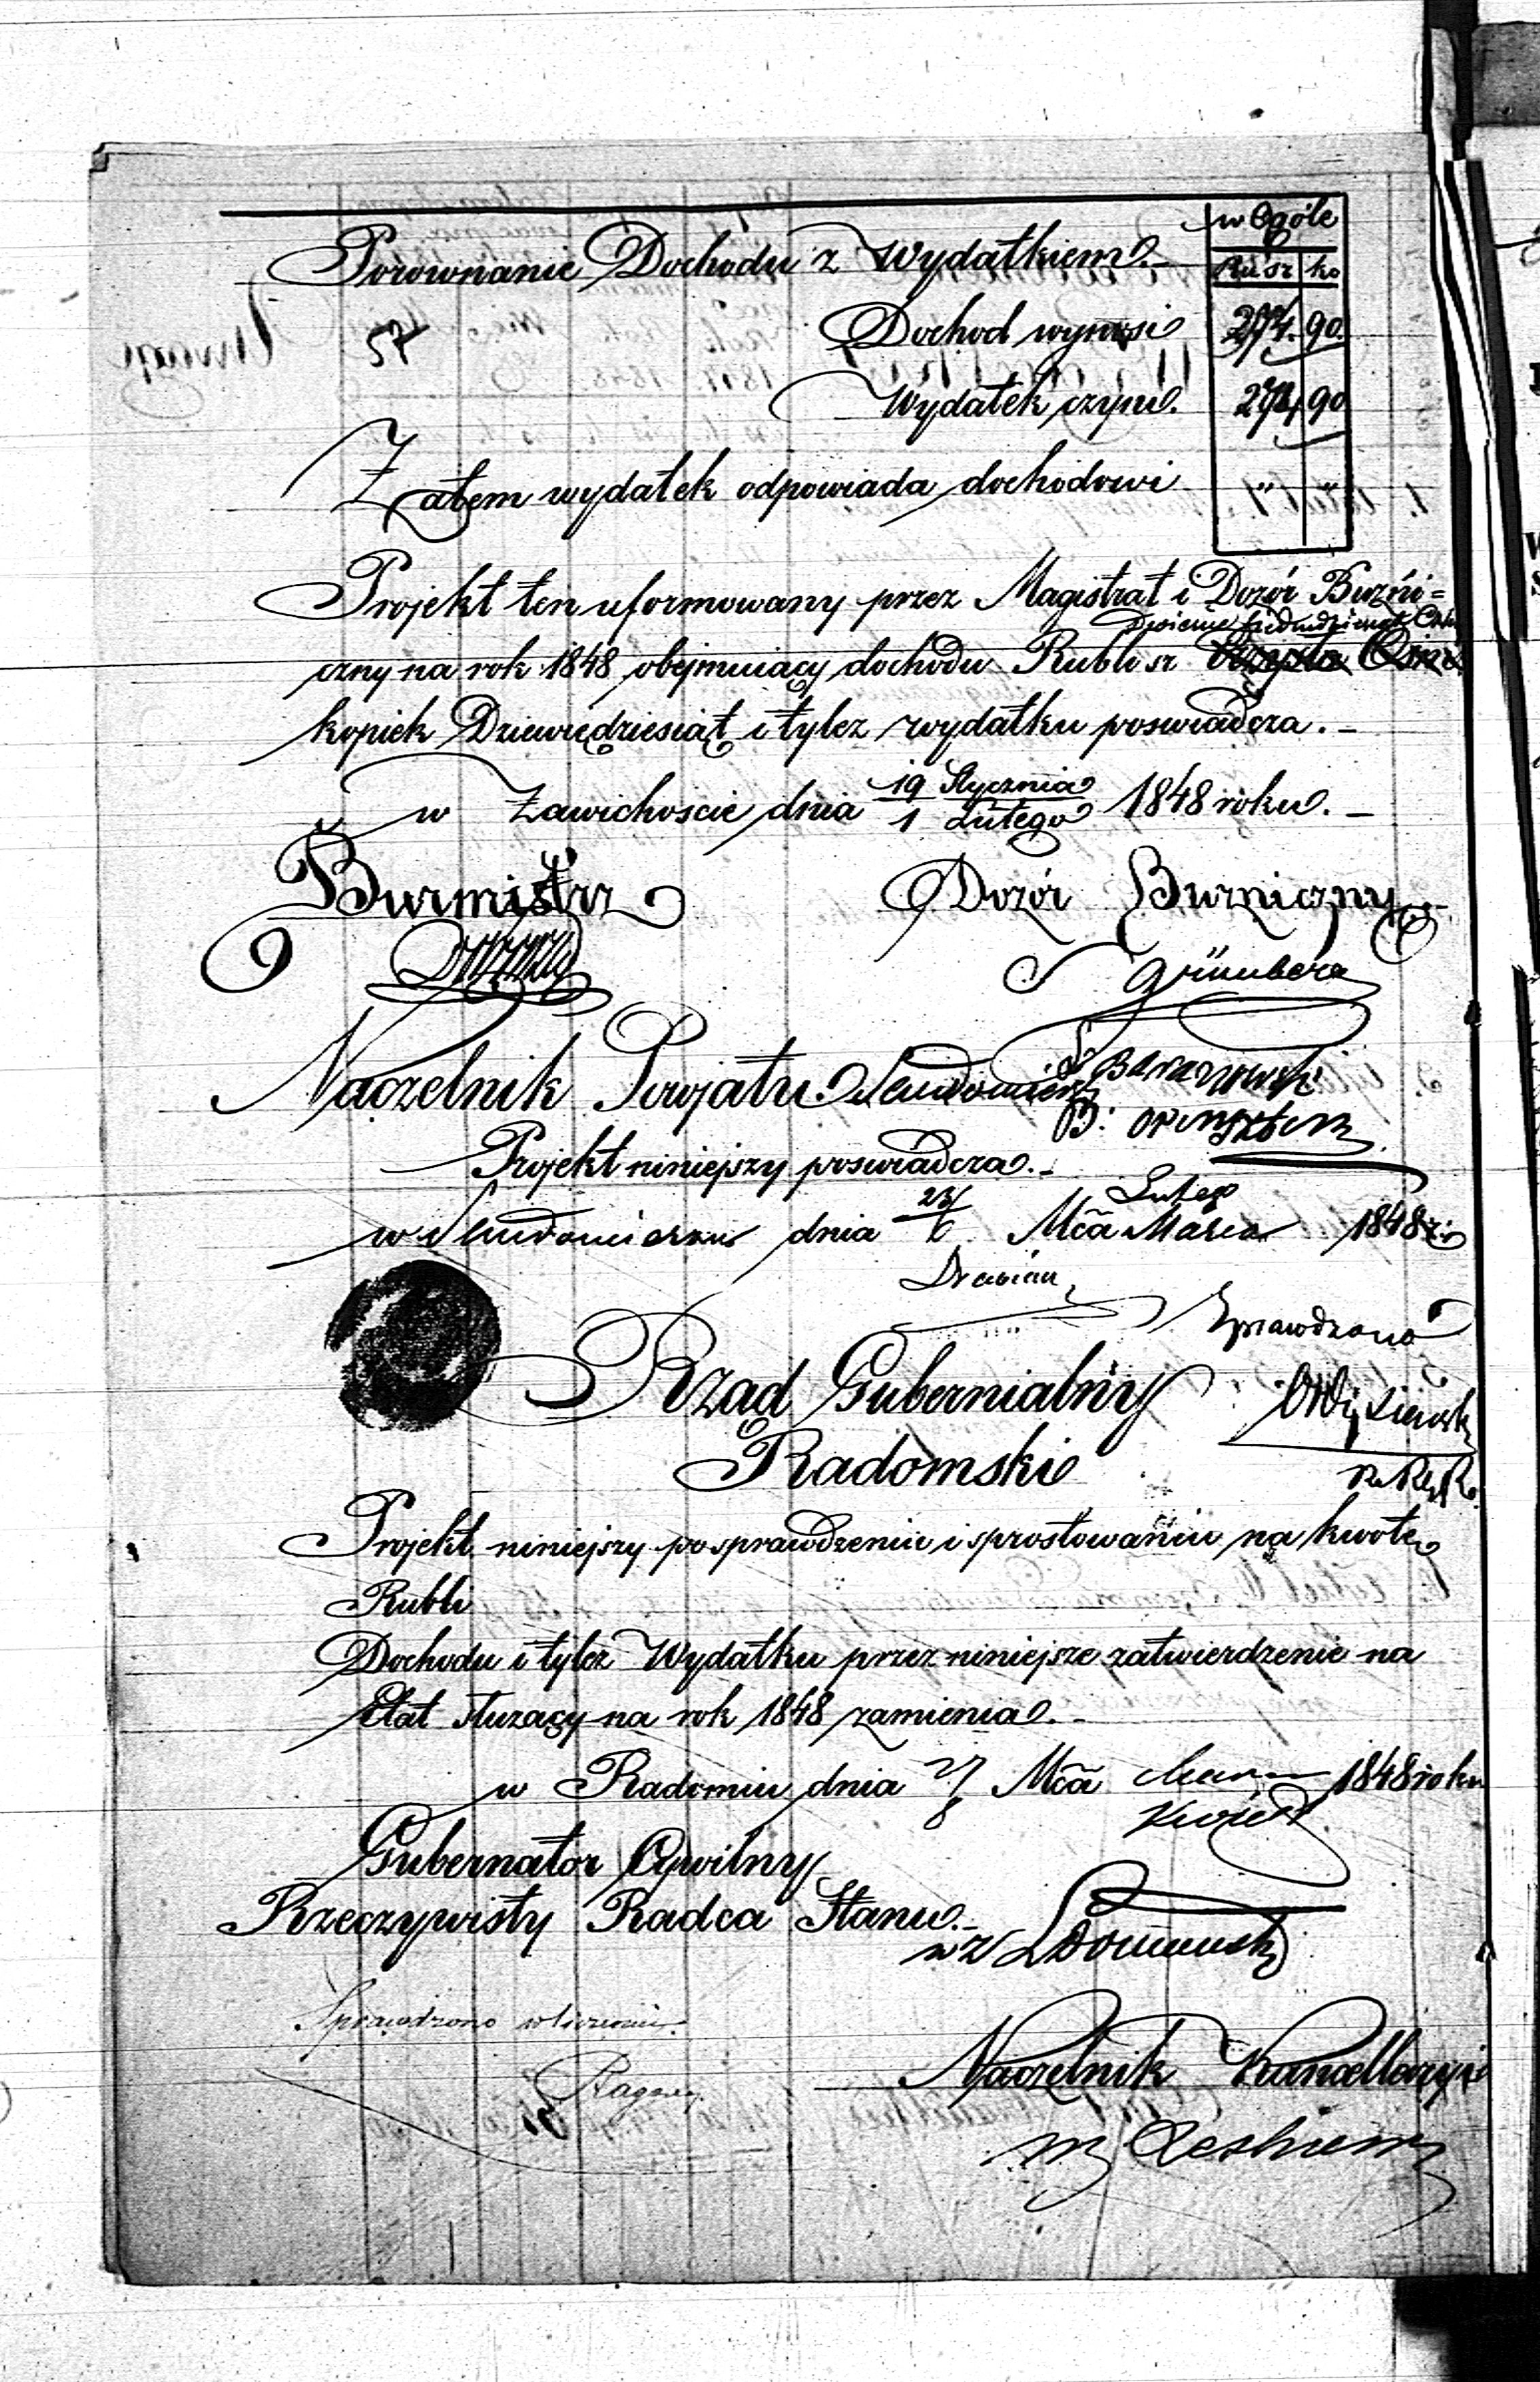 w Ogóle
Porownanie Dochodu z Wydatkiem.-
Ru sr ko
Dochod wynosi 274. 90.
57
Uwagi
Wydatek czyni. 274 90
Zatem wydatek odpowiada dochodowi " "
Projekt ten uformowany przez Magistrat i Dozór Buzni=
Dwieście siedmdziesiąt
czny na rok 1848 obejmuiący dochodu Rubli sr
kopiek Dziewiędziesiąt i tylez wydatku poswiadcza.-
w Zawichoscie dnia 19 Stycznia / 1 Lutego 1848 roku.-
Burmistrz Dozór Buzniczny
Grünberg
Naczelnik Powjatu Sandomier
B:
Projekt niniejszy poswiadcza.-
Lutego
w Sandomierzu dnia 23/6 Mca Marca 1848 r:
Sprawdzono
Rząd Gubernialny
Radomski
Projekt niniejszy po sprawdzeniu i sprostowaniu na kwotę
Rubli
Dochodu i tylez Wydatku przez niniejsze zatwierdzenie na
Etat słuzący na rok 1848 zamienia.-
w Radomiu dnia 27/8 Mca Marca 1848 roku
Kwiet
Gubernator Cywilny
Rzeczywisty Radca Stanu.-
wz
Sprawdzono w liczeniu.
Naczelnik Kancellaryi